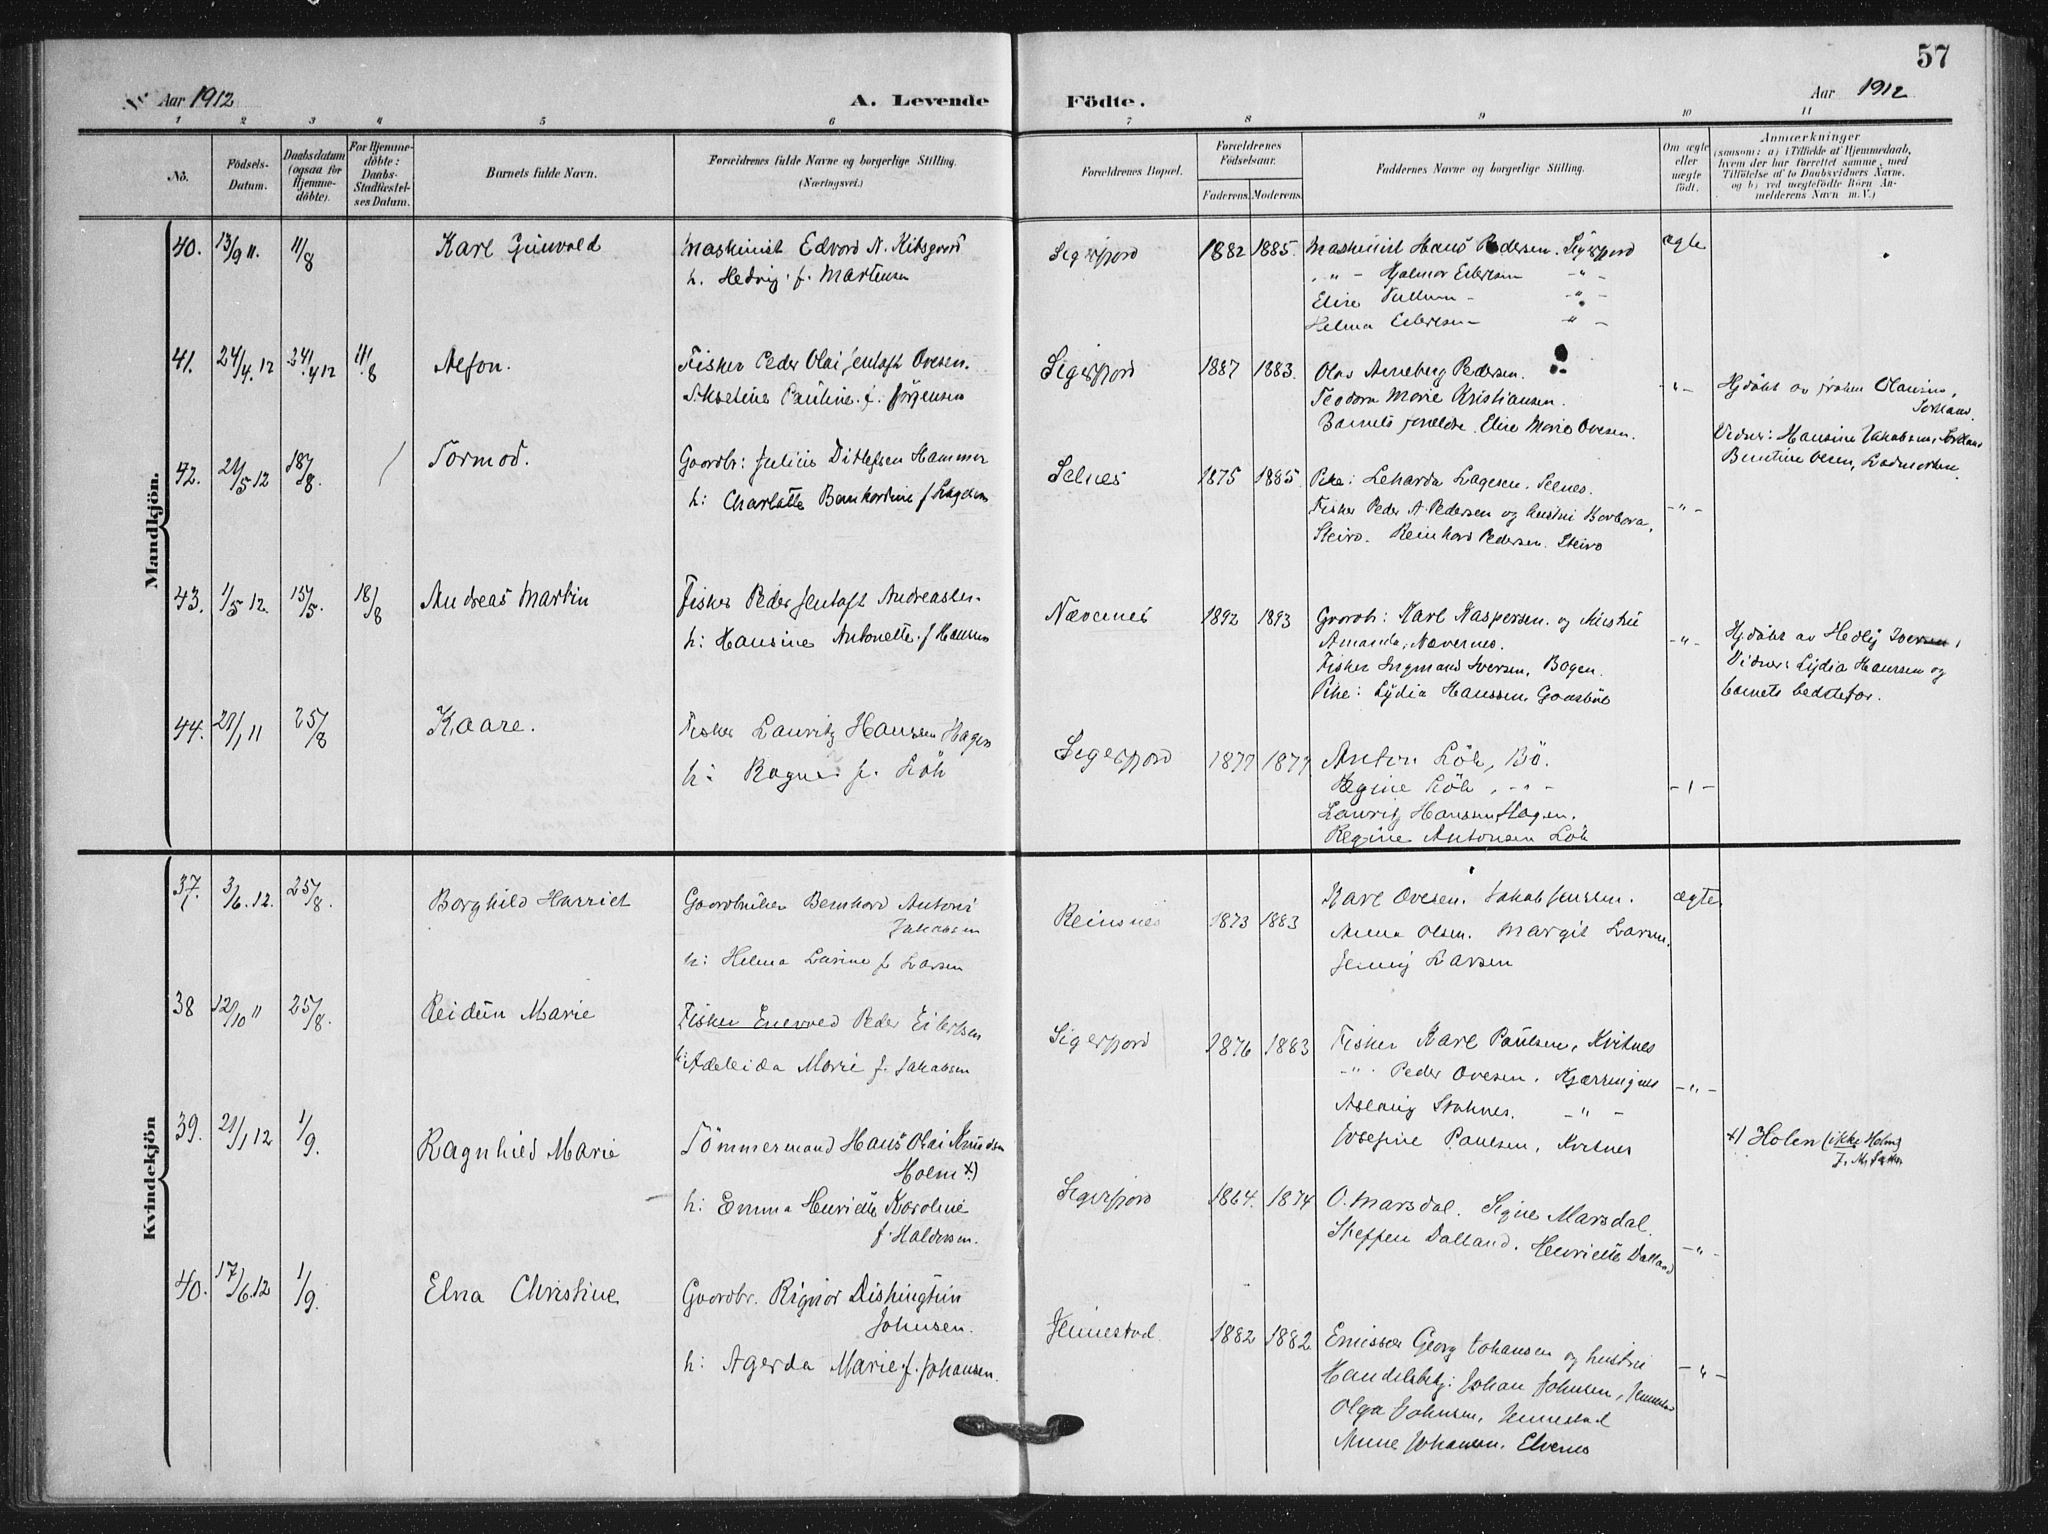 57
Aar 1912
A. Levende
Födte.
Aar 1912
1 2 3 4 5 6 7 8 9 10 11
No.
Födsels-Datum.
Daabsdatum (ogsaa for Hjemme-döbte).
For Hjemme-döbte: Daabs-Stadfæstel-ses Datum.
Barnets fulde Navn.
Forældrenes fulde Navne og borgerlige Stilling. (Næringsvei.)
Forældrenes Bopæl.
Forældrenes Födselsaar.
Faderens. Moderens.
Faddernes Navne og borgerlige Stilling.
Om ægte eller uægte födt.
Anmærkninger
(saasom: a) i Tilfælde af Hjemmedaab, hvem der har forrettet samme, med Tilföielse af to Daabsvidners Navne, og b) ved uægtefödte Börn An-melderens Navn m. V.)
Mandkjön.
40. 13/9 11. 11/8 Karl Gunvald
Maskinist Edvard N. Kitsgaard
h. Hedvig f. Martensen
Sigerfjord 1882 1885.
Maskinist Hans Pedersen. Sigerfjord
" - Hjalmar Eilertsen - " -
Elise - " -
Helma Eilertsen - " -
ægte
41. 24/4. 12 24/4 12 11/8
Fisker Peder Olai Jentoft Ovesen.
Pauline f. Jørgensen
Sigerfjord 1887 1883.
Olav Arneberg Pedersen.
Teodora Marie Kristiansen.
Barnets forældre. Elise Marie Ovesen.
- " -
Hjdøbt av
Vidner: Hansine Jakobsen,
42. 21/5 12 18/8. Tormod.
Gaardbr: Julius Ditlefsen Hammer
h: Charlotte Bernhardine f Lagesen
Selnes 1875 1885
Pike: Leharda Lagesen. Selnes.
Fisker Peder A. Pedersen og hustru Barbara,
Steiro. Reinhard Pedersen. Steiro
- " -
43. 1/5 12. 15/5. 18/8 Andreas Martin
Fisker Peder Jentoft Andreassen
h: Hansine Antonette f Hansen
Nævernes 1892 1893
Gaardb: Karl Kaspersen og hustru
Amanda, Nævernes.
Fisker Ingmand Iversen, Bogen.
Pike: Lydia Hanssen,
- " -
Hjdøbt av Hedly Iversen,
Vidner: Lydia Hanssen og
barnets bedstefar.
44. 21/1 11 25/8 Kaare.
Fisker Lauritz Hanssen Hagen
h: Ragna f. Löh
Sigerfjord 1877 1877
Anton Löh, Bö.
Regine Löh, - " -
Lauritz Hanssen Hagen.
Regine Antonsen Löh
- " -
Kvindekjön
37. 3/6. 12. 25/8. Borghild Harriet
Gaardbruker Bernhard Antoni
Jakobsen
h: Helma Larine f Larsen
Reinsnes 1873 1883
Karl Ovesen. Jakob Jenssen.
Anna Olsen. Margit Larsen.
Jenny Larsen
ægte
38 12/10 " 25/8. Reidun Marie
Fisker Enevold Peder Eilertsen
h: Adeleida Marie f. Jakobsen
Sigerfjord 1876 1883
Fisker Karl Paulsen, Kvitnes
" Peder Ovesen, Kjerringnes
Aslaug Stoknes. - " -
Josefine Paulsen, Kvitnes
- " -
39. 21/1 12 1/9. Ragnhild Marie
Tömmermand Hans Olai Knudsen
Holm x)
h: Emma Henriette Karoline
f. Haldersen.
Sigerfjord 1864. 1874
O. Marsdal. Signe Marsdal.
Steffen Dalland. Henriette Dalland
- " -
x) Holen (ikke Holm)
40. 17/6. 12 1/9. Elna Christine
Gaardbr. Rignor Dishington
Johnsen.
h: Agerda Marie f. Johansen.
Jennestad 1882 1882
Emissær Georg Johansen og hustru
Handelsbetj: Johan Johnsen, Jennestad
Olga Johnsen, Jennestad
Anne Johansen. Elvenes
- " -